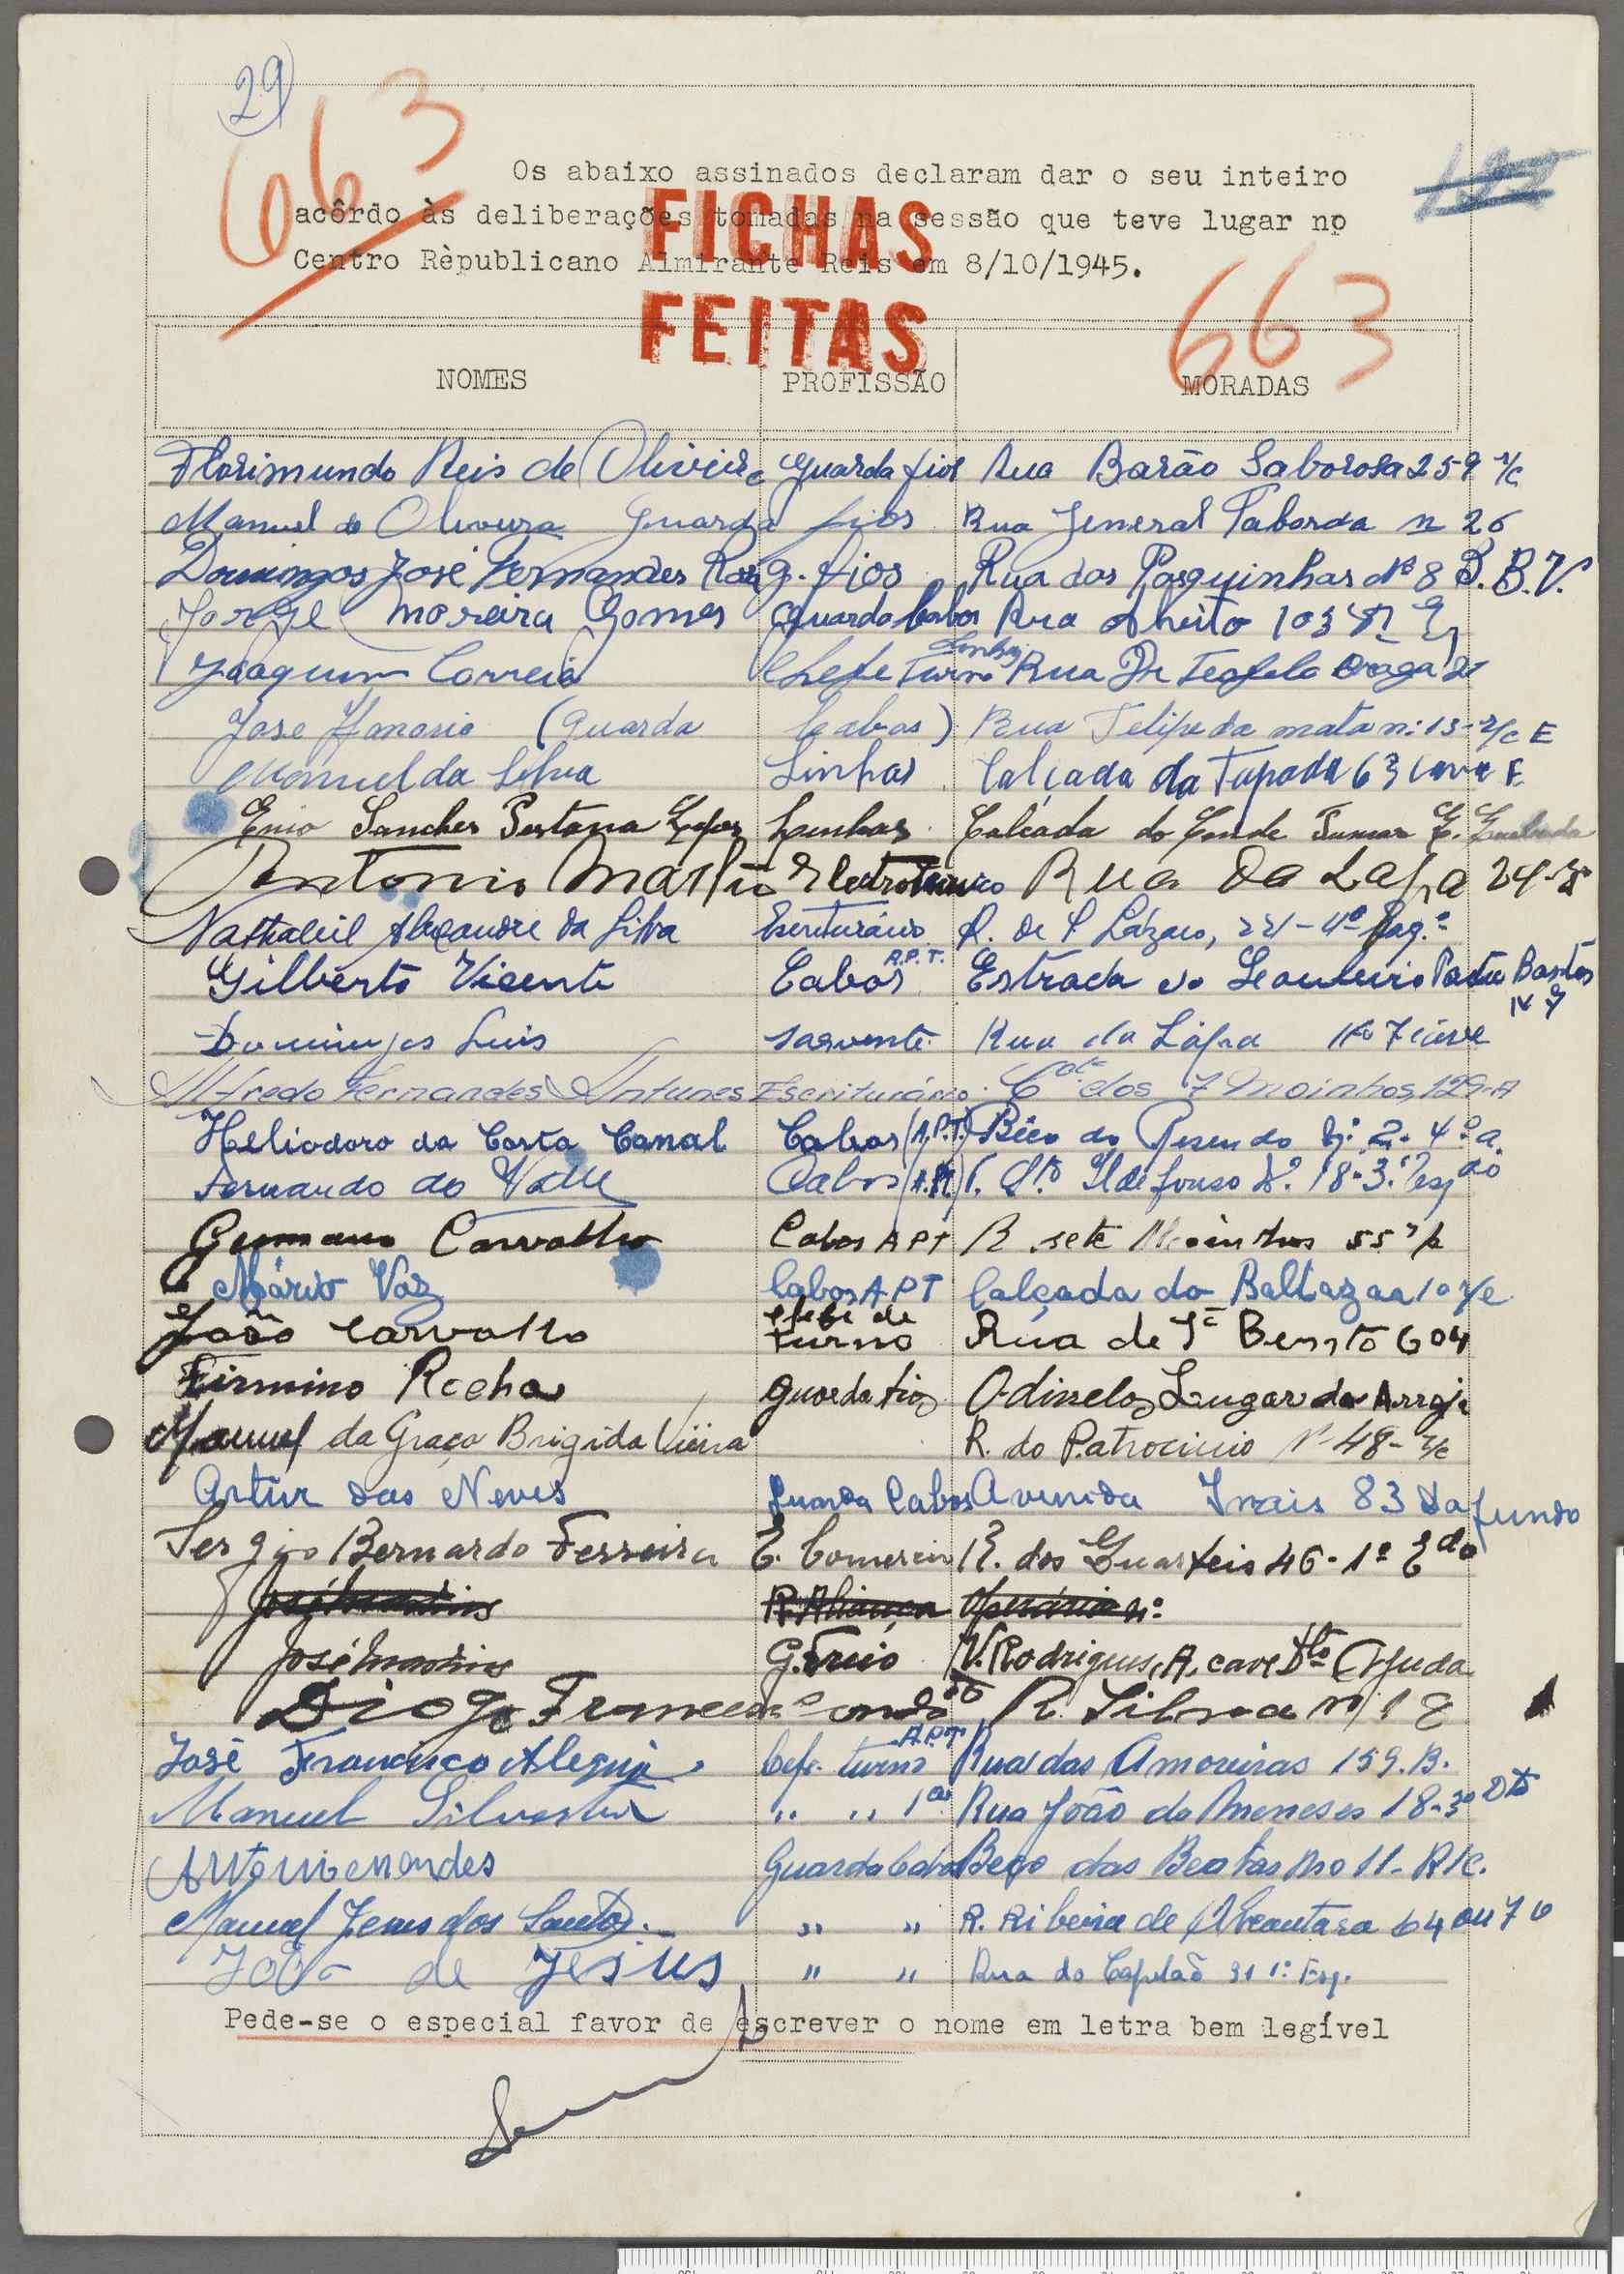 29
663
Os abaixo assinados declaram dar o seu inteiro
acôrdo às deliberações tomadas na sessão que teve lugar no
Centro Rèpublicano Almirante Reis em 8/10/1945.
FICHAS
FEITAS
663
NOMES PROFISSÃO MORADAS
Florimundo Reis de Oliveira guarda fios Rua Barão Saborosa 259 r/c
Manuel de Oliveira guarda fios Rua General Taborda n 26
Domingos José Fernandes g. fios Rua das Pasquinhas Nº 8 B.V.
Jorge Moreira Gomes Guarda Cabos Rua 103
Joaquim Correia Chefe Turno Linhas Rua Dr Teofilo Braga
Jose Honorio (Guarda Cabos) Rua Felipe da mata n: 13-r/c E
Manuel da Silva Linhas Calçada da Tapada 63 cave E.
Sanches Santana Lopes Linhas Calçada do Conde
Antonio Martins Rua Da Lapa 24
Nathaniel Alexandre da Silva Escriturário R. de S. Lázaro,
Gilberto Vicente Cabos A.P.T. Estrada do Bastos
Domingos Luis servente Rua da Lapa Nº 7 cave
Alfredo Fernandes Antunes Escriturário dos 7 Moinhos, 129-A
Heliodoro da Costa Canal Cabos (A.P.T.) Bêco do Resendo 2- 4º a.
Fernando do Valle Cabos Sto Ildefonso 18-3º
Germano Carvalho Cabos APT R. sete Moinhos 55 r/c
Mário Vaz Cabos APT Calçada do Baltazar 10 r/c
João Carvalho chefe de turno Rua de S. Bento 604
Firmino Rocha guarda fios Odivelas Lugar da Arroja
Manuel da Graça Brigida Vieira R. do Patrocinio Nº 48- r/c
Artur das Neves Guarda Cabos Avenida Ivais 83 Dafundo
Sergio Bernardo Ferreira E. Comercio R. dos Quarteis 46- 1º Edo
José Martins R. Aliança Operária nº
José Martins G. Freio V. Rodrigues, A, cave Dto Ajuda
Diogo R. Silva nº 1
José Francisco Alegria Cefe. turno A.P.T. Rua das Amoreiras 159. B.
Manuel Silvestre " " 1ª Rua João de Meneses 18-3º Dto
Antonio Mendes Guarda Cabos Beco das Beatas Nro 11- R/c.
Manuel Jesus dos Santos " " R. Ribeira de Alcantara 64 ou 70
João de Jesus " " Rua do Capelão 31 1º Esq.
Pede-se o especial favor de escrever o nome em letra bem legível